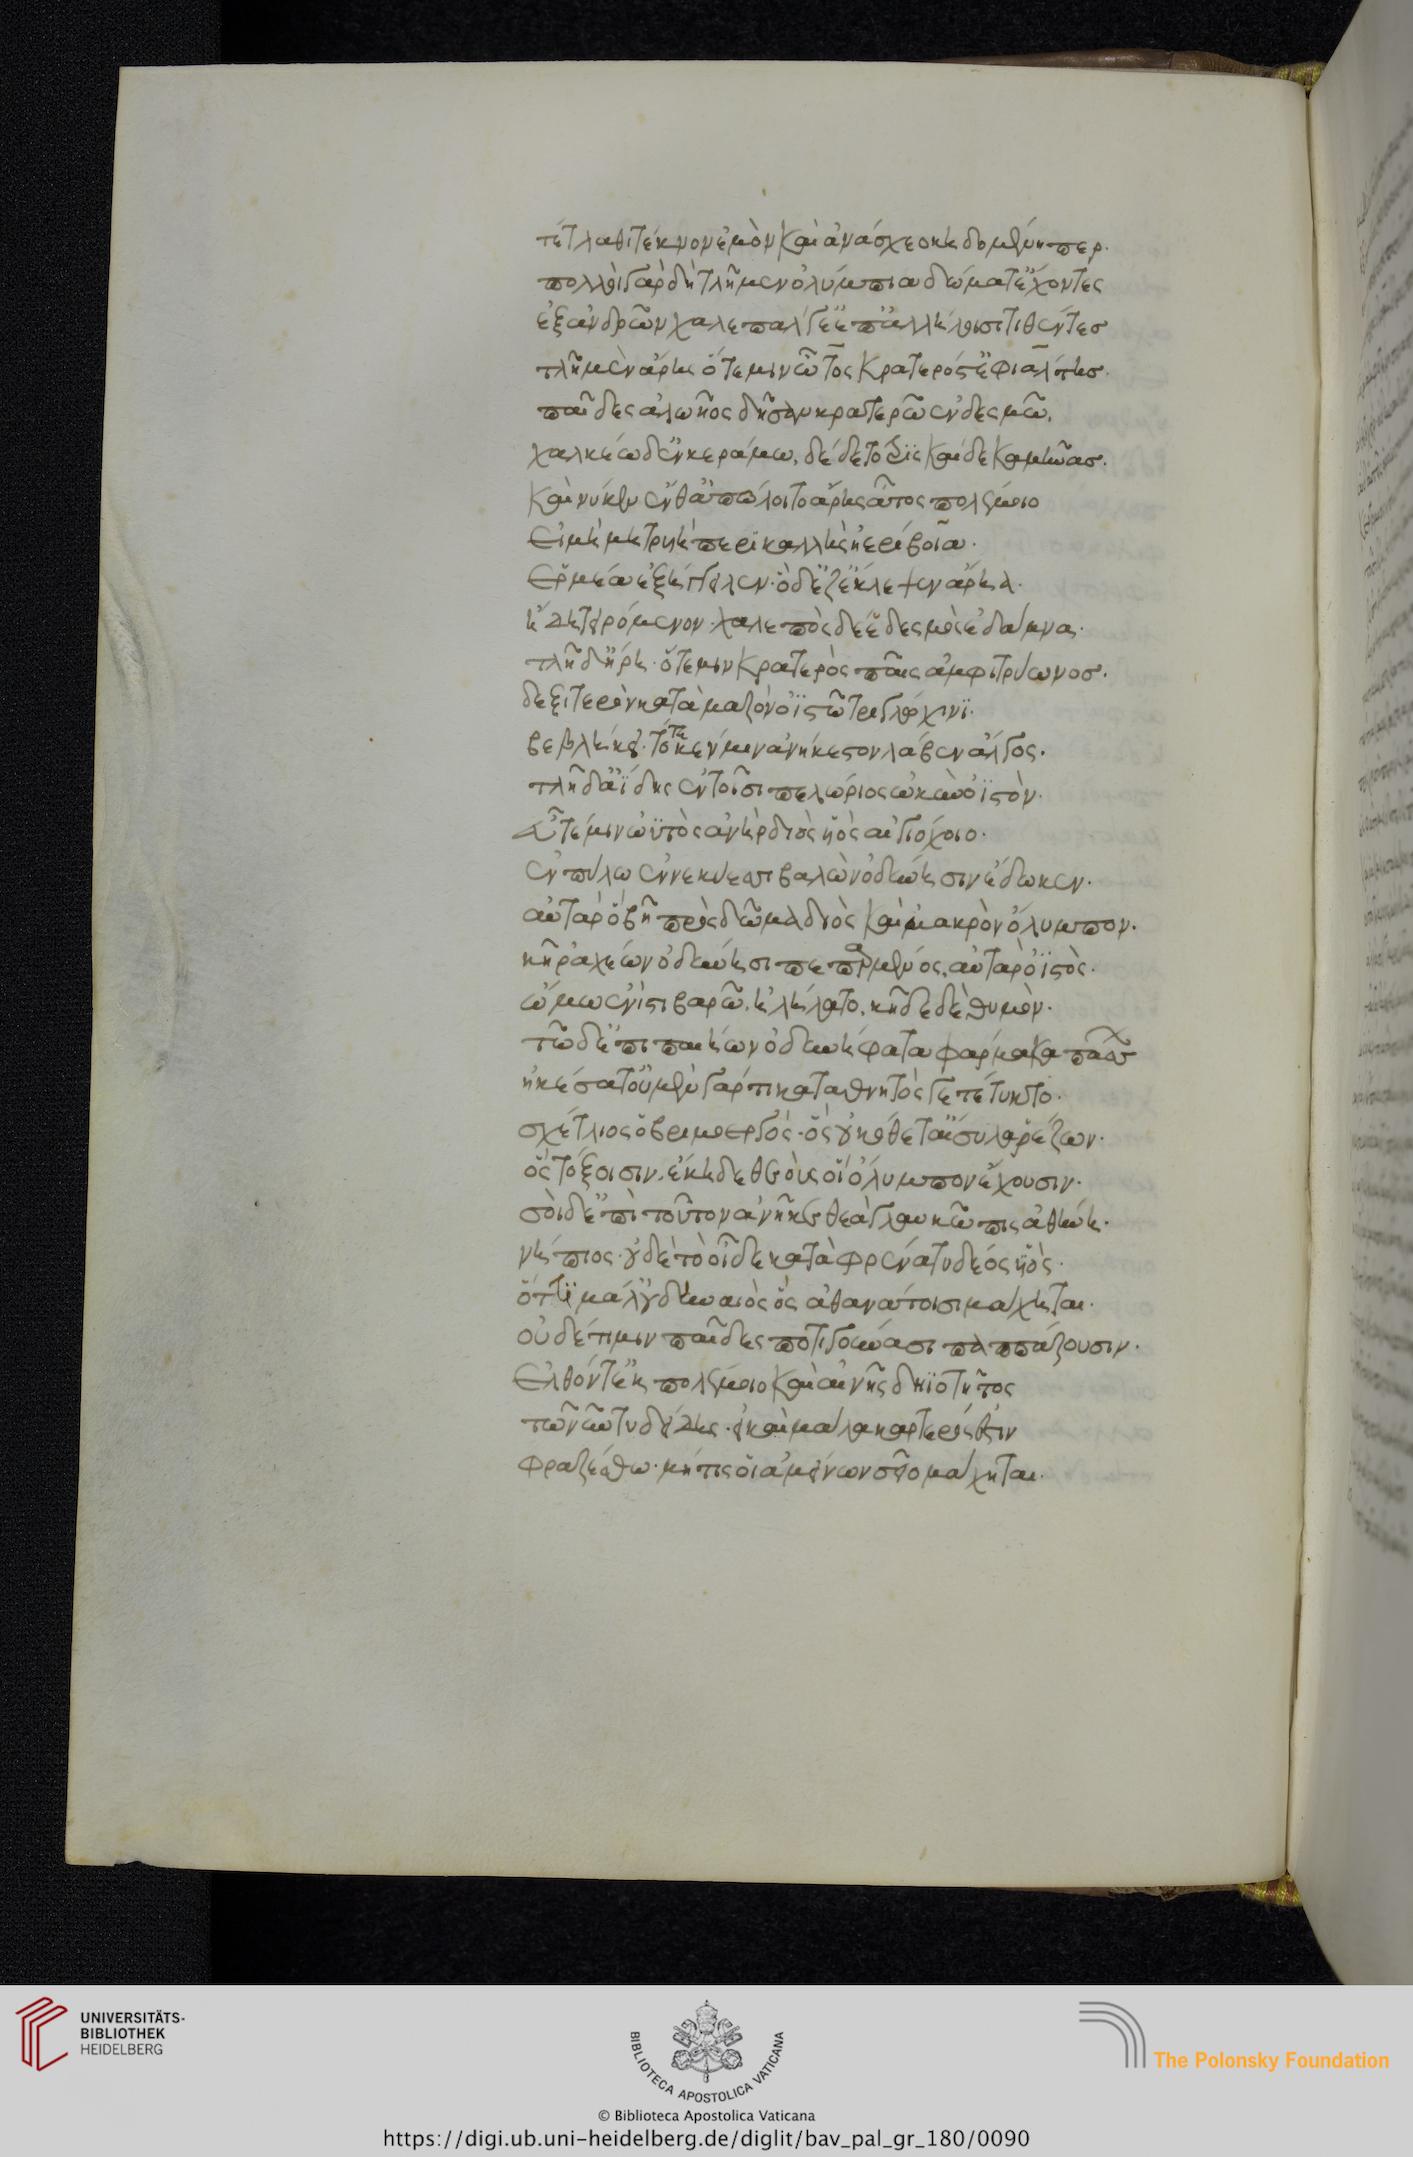 τέτλαθι τέκνον ἐμὸν καὶ ἀνάσχεο κηδομένη περ.
πολλοὶ γὰρ δὴ τλῆμεν ὀλύμπια δώματ' ἔχοντες
ἐξ ἀνδρῶν χαλεπ' ἄλγε' ἐπ' ἀλλήλοισι τιθέντες
τλῆ μὲν ἄρης ὅτε μιν ὦτος κρατερός τ' ἐφιάλτης.
παῖδες ἀλωῆος δῆσαν κρατερῷ ἐνὶ δεσμῷ.
χαλκέῳ δ' ἐν κεράμῳ. δέδετο τρὶς καὶ δέκα μῆνας.
καί νύ κεν ἔνθ' ἀπόλοιτο ἄρης ἆτος πολέμοιο
εἰ μὴ μητρυιὴ περικαλλὴς ἠερίβοια.
ἑρμέᾳ ἐξήγγειλεν· ὁ δ' ἐξέκλεψεν ἄρηα.
ἤδη τειρόμενον· χαλεπὸς δέ ἑ δεσμὸς ἐδάμνα.
τλῆ δ' ἥρη· ὅτε μιν κρατερὸς παῖς ἀμφιτρύωνος.
δεξιτερὸν κατὰ μαζὸν ὀϊστῷ τριγλώχινι.
βεβλήκει· τότε κέν μιν ἀνήκεστον λάβεν ἄλγος.
τλῆ δ' ἀΐδης ἐν τοῖσι πελώριος ὠκὺν ὀϊστὸν.
εὖτέ μιν ωὑτὸς ἀνὴρ διὸς υἱὸς αἰγιόχοιο.
ἐν πύλῳ ἐν νεκύεσσι βαλὼν ὀδύνῃσιν ἔδωκεν.
αὐτὰρ ὃ βῆ πρὸς δῶμα διὸς καὶ μακρὸν ὄλυμπον.
κῆρ ἀχέων ὀδύνῃσι πεπαρμένος. αὐτὰρ ὀϊστὸς.
ὤμῳ ἐνὶ στιβαρῷ. ἠλήλατο. κῆδε δὲ θυμόν.
τῷ δ' ἐπὶ παιήων ὀδυνήφατα φάρμακα πάσσων
ἠκέσατ' οὐ μὲν γάρ τι καταθνητός γε τέτυκτο.
σχέτλιος ὀβριμοεργός· ὃς οὐκ ὄθετ' αἴσυλα ῥέζων.
ὃς τόξοισιν. ἔκηδε θεοὺς οἳ ὄλυμπον ἔχουσιν.
σοὶ δ' ἐπὶ τοῦτον ἀνῆκε θεὰ γλαυκῶπις ἀθήνη.
νήπιος· οὐδὲ τὸ οἶδε κατὰ φρένα τυδέος υἱὸς.
ὅττι μάλ' οὐ δηναιὸς ὃς ἀθανάτοισι μάχηται.
οὐδέ τί μιν παῖδες ποτὶ γούνασι παππάζουσιν.
ἐλθόντ' ἐκ πολέμοιο καὶ αἰνῆς δηϊοτῆτος
τῷ νῦν τυδείδης. εἰ καὶ μάλα καρτερός ἐστιν
φραζέσθω· μή τις οἱ ἀμείνων σεῖο μάχηται.
UNIVERSITÄTS-
BIBLIOTHEK
HEIDELBERG
BIBLIOTECA APOSTOLICA VATICANA
The Polonsky Foundation
© Biblioteca Apostolica Vaticana
https://digi.ub.uni-heidelberg.de/diglit/bav_pal_gr_180/0090